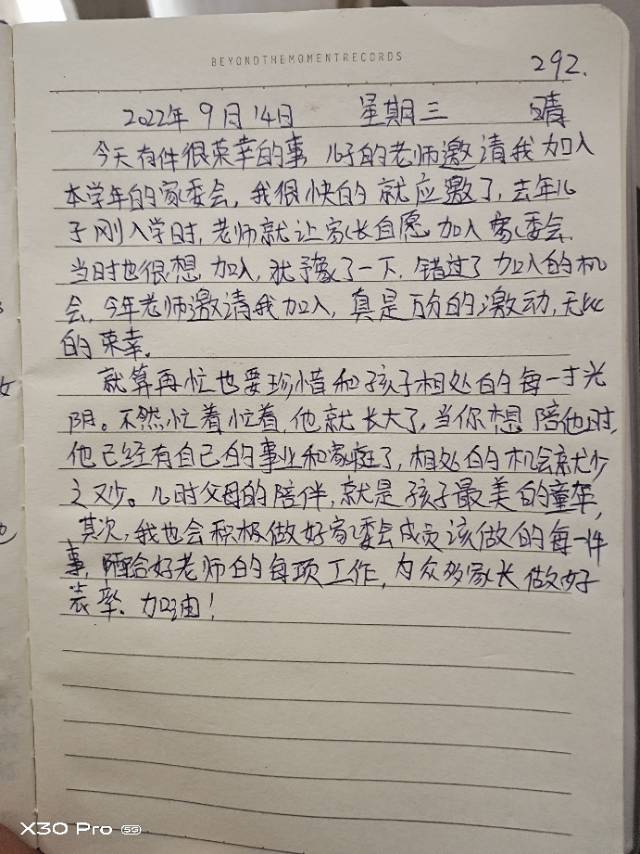 BEYONDTHEMOMENTRECORDS
292.
2022年9月14日 星期三 晴
今天有件很荣幸的事 儿子的老师邀请我加入
本学年的家委会,我很快的就应邀了,去年儿
子刚入学时,老师就让家长自愿加入家委会,
当时也很想加入,犹豫了一下,错过了加入的机
会,今年老师邀请我加入,真是万分的激动,无比
的荣幸.
就算再忙也要珍惜和孩子相处的每一寸光
阴。不然忙着忙着,他就长大了,当你想陪他时,
他已经有自己的事业和家庭了,相处的机会就少
之又少。儿时父母的陪伴,就是孩子最美的童年,
其次,我也会积极做好家委会成员该做的每一件
事,好老师的每项工作,为众多家长做好
加油!
X30 Pro 5G